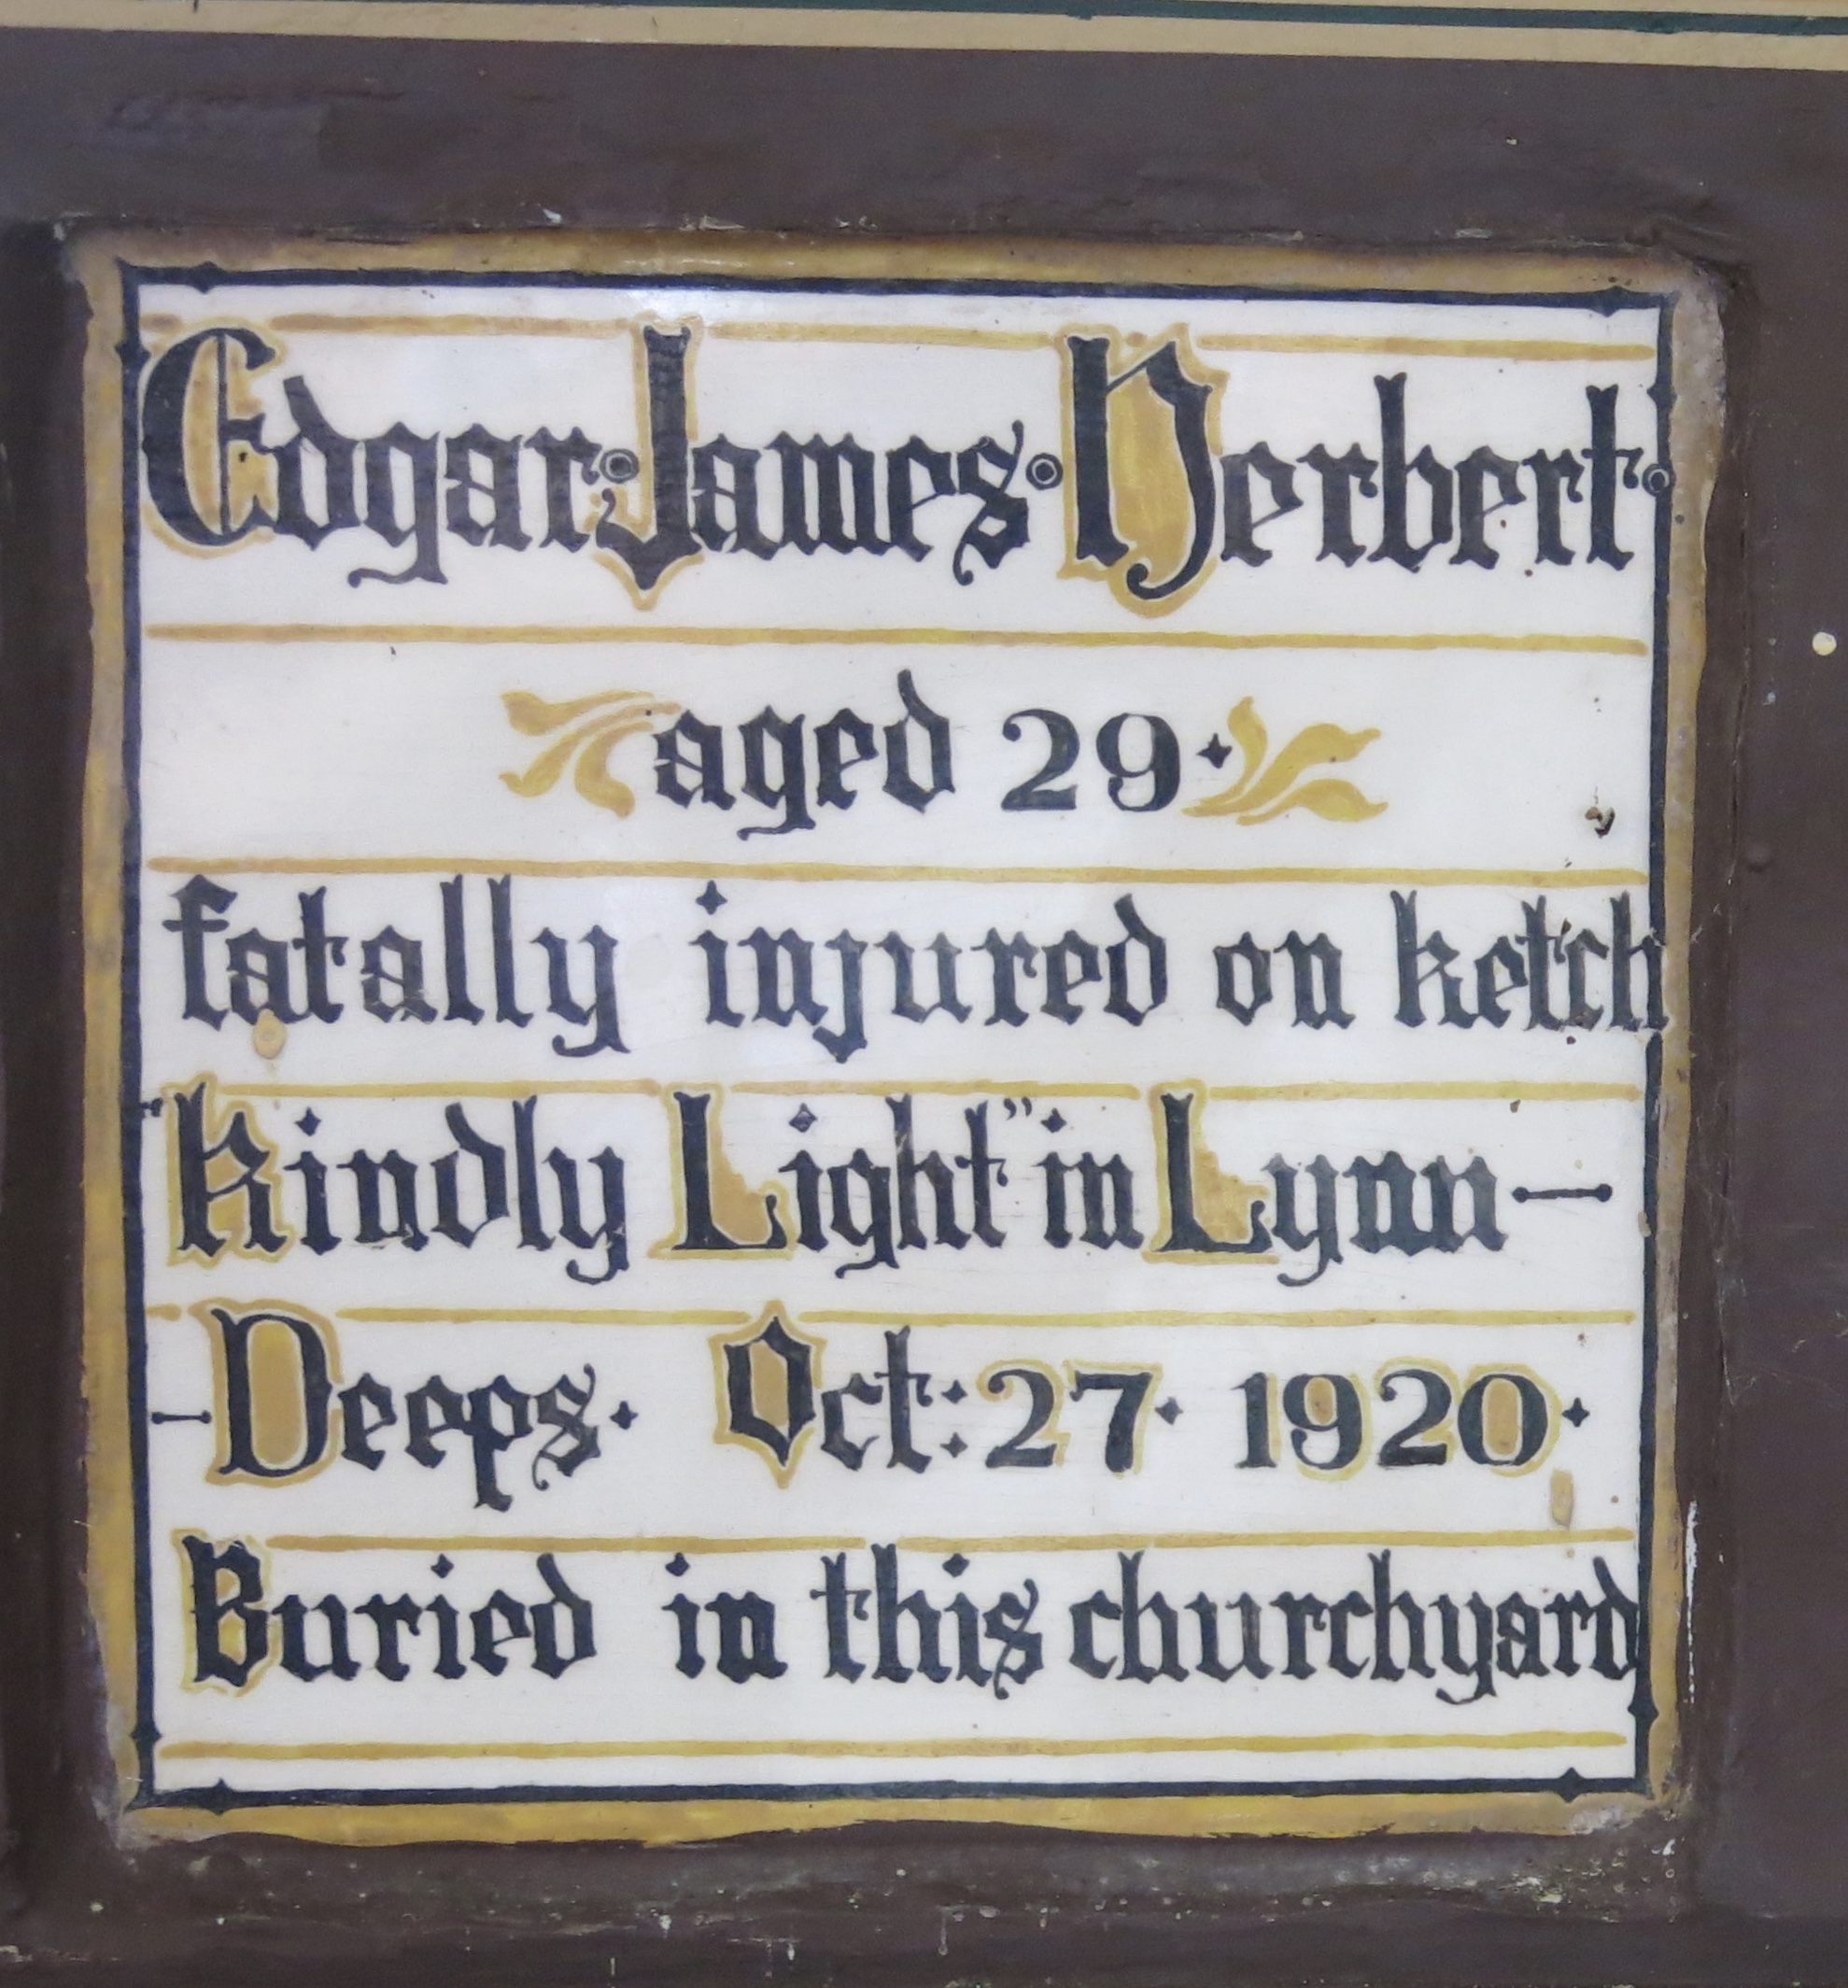 Edgar James Herbert
aged 29
fatally injured on ketch
"Kindly Light" in Lynn-
-Deeps. Oct: 27. 1920.
Buried in this churchyard